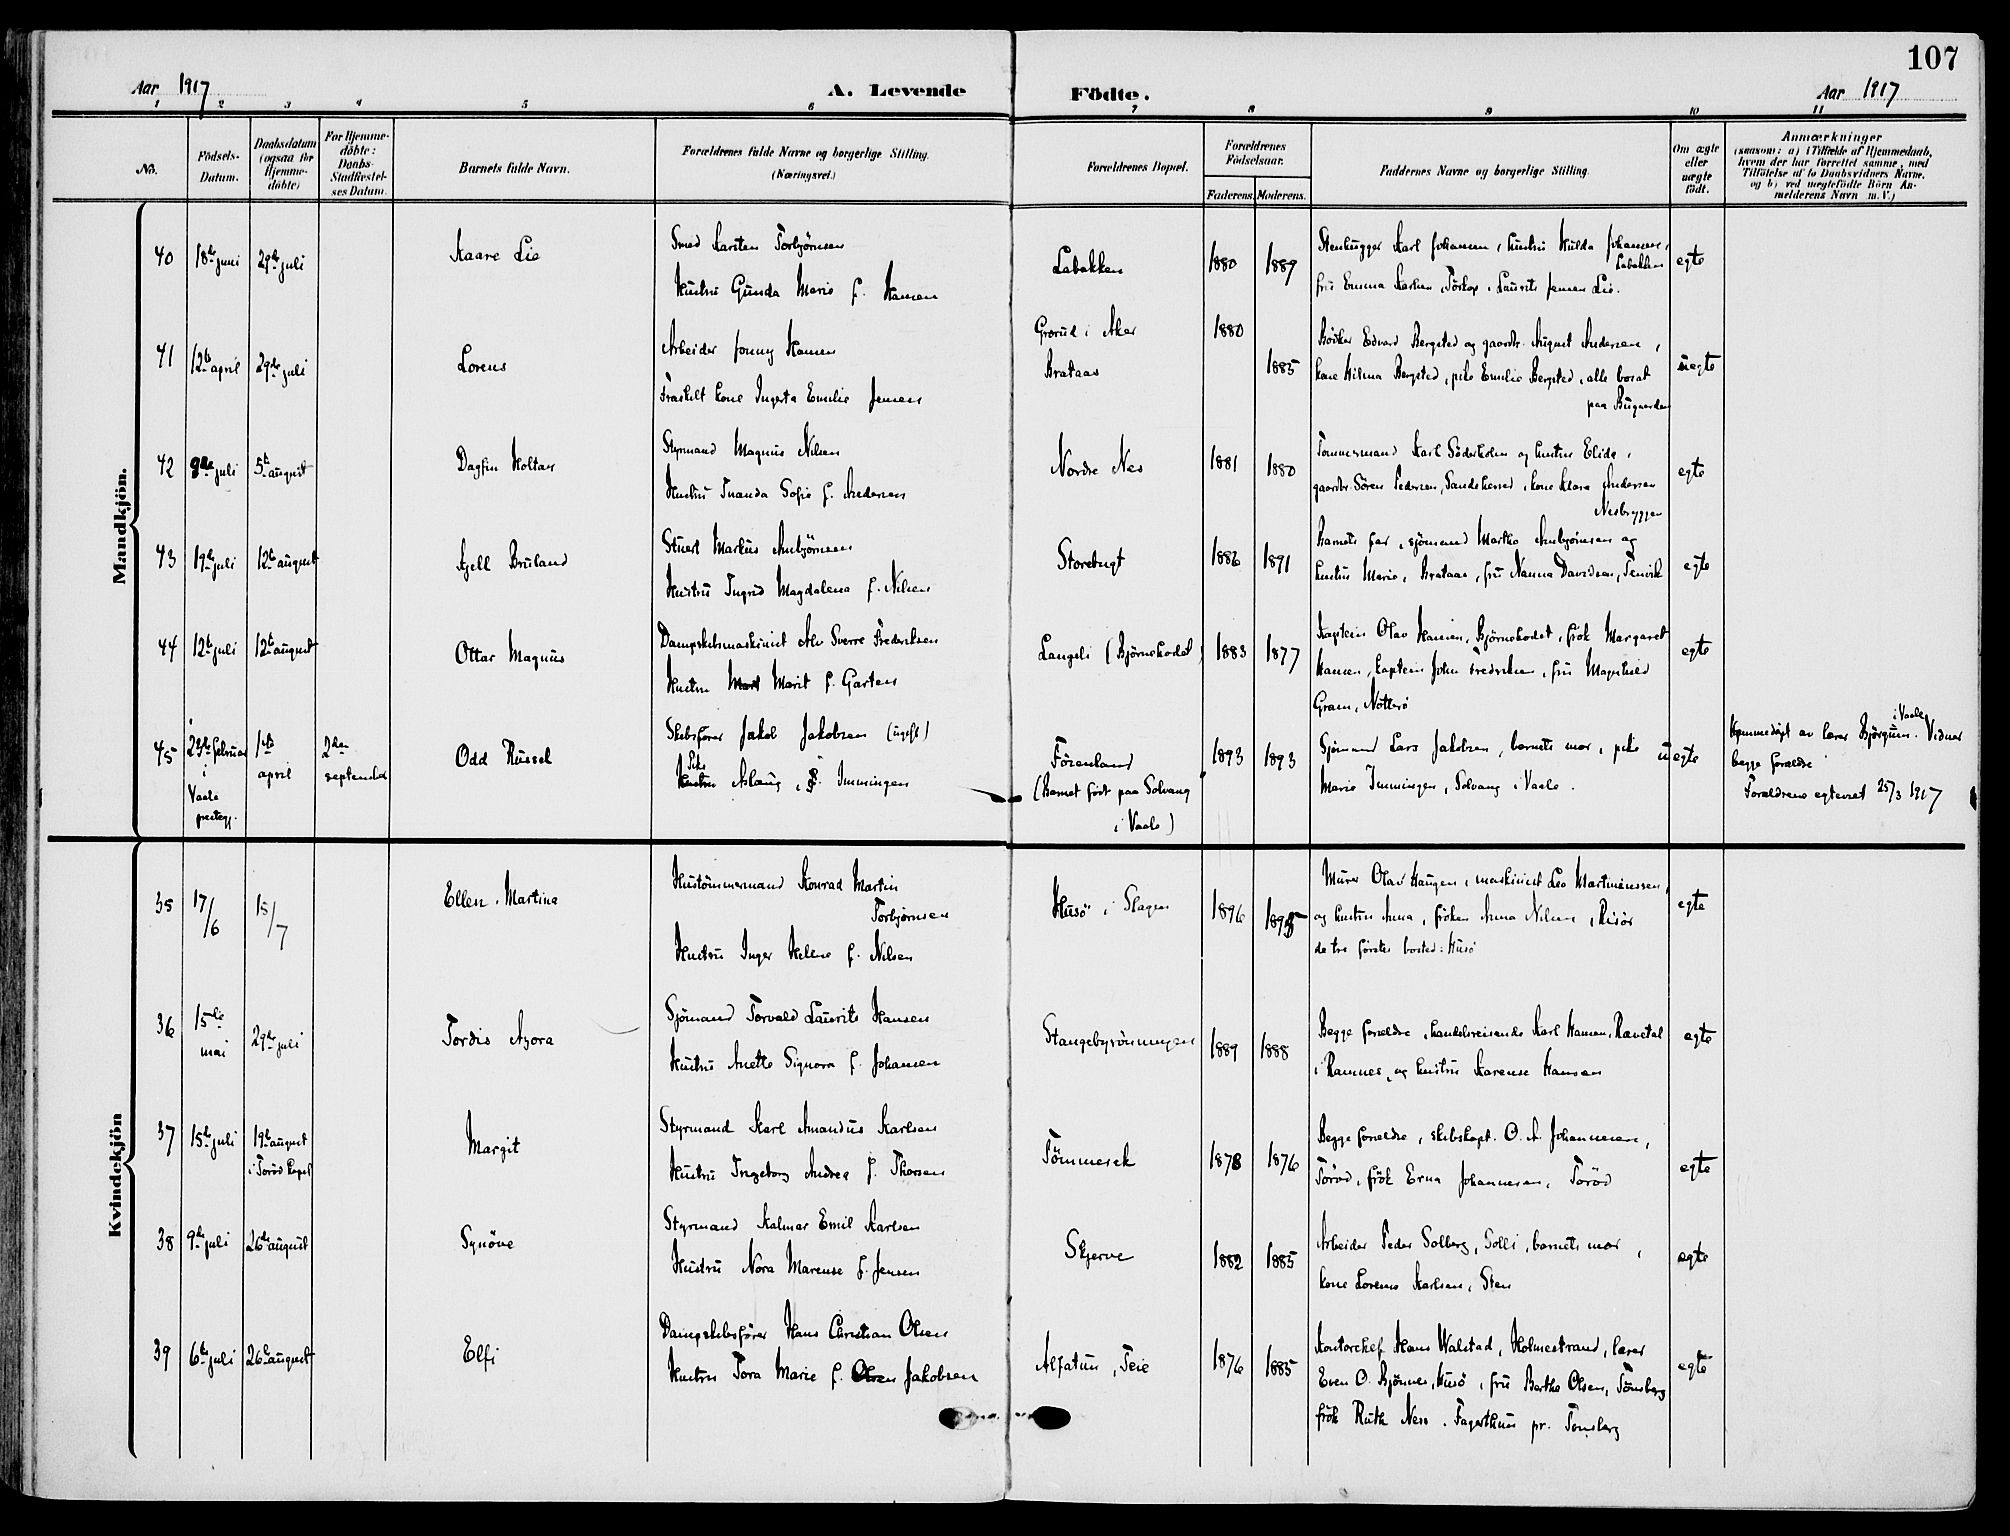 107
Aar 1917
A. Levende
Födte.
Aar 1917
1 2 3 4 5 6 7 8 9 10 11
No.
Födsels-
Datum.
Daabsdatum
(ogsaa for
Hjemme-
döbte)
For Hjemme-
döbte:
Daabs-
Stadfæstel-
ses Datum.
Barnets fulde Navn.
Forældrenes fulde Navne og borgerlige Stilling.
(Næringsvei.)
Forældrenes Bopæl.
Forældrenes
Födselsaar.
Faderens.
Moderens.
Faddernes Navne og borgerlige Stilling.
Om ægte
eller
uægte
födt.
Anmærkninger
(saasom: a) i Tilfælde af Hjemmedaab,
hvem der har forrettet samme, med
Tilföielse af to Daabsvidners Navne.
og b) ved uægtefödte Börn An-
melderens Navn m. V.)
Mandkjön.
40 18de juni 29de juli
Kaare Lie
Smed Karsten Torbjörnsen
Hustru Gunda Marie f. Hansen
Labakken
1880 1889
Stenhugger Karl Johansen, hustru Hulda Johansen,
Labakken
fru Emma Karlsen, Torkop, Laurits Jensen Lie.
egte
41 12te april 29de juli
Lorens
Arbeider Jonny Hansen
Fraskilt kone Ingerta Emilie Jensen
Grorud i Aker
Brataas
1880
1885
Bödker Edvard Bergsted og gaardbr. August Andersen,
kone Hilma Bergsted, pike Emilie Bergsted, alle bosat
paa Bugaarden
uegte
42 9de juli 5te august
Dagfin Holtar
Styrmand Magnus Nilsen
Hustru Tnanda Sofie f. Andersen
Nordre Nes
1881 1880
Tömmermand Karl Söderholm og hustru Elida,
gaardbr. Sören Pedersen, Sandekerred, kone Klara Andersen
Nesbryggen
egte
43 19de juli 12te august
Kjell Bruland
Stuert Markus Anbjörnsen
Hustru Ingrid Magdalena f. Nilsen
Storebugt
1886 1891
Barnets far, sjömand Martho Anbjörnsen og
hustru Marie, Brataas, fru Nanna Davidsen, Tenvik
egte
44 12te juli 12te august
Ottar Magnus
Dampskibsmaskinist Alv Sverre Fredriksen
Hustru Marit f. Garten
Langeli (Björnehodet)
1883 1877
Kaptein Olav Hansen, Björnehodet, frök Margaret
Hansen, kaptein John Fredriksen, fru Magnhild
Gram, Nötterö
egte
45 februar
i
Vaale
prestegj.
1ste
april
2den
september
Odd Russel
Skibsförer Jakob Jakobsen (ugift)
Pike
Hustru Aslaug, f. Imningen
Förenland
(Barnet födt paa Solvang
i Vaale)
1893 1893
Sjömand Lars Jakobsen, barnets mor, pike
Marie Imningen, Solvang i Vaale.
uegte
i Vaale
Hjemmedöpt av lærer Björgum. Vidner
begge forældre
Forældrene egteviet 25/3 1917
Kvindekjön
35 17/6 15/7
Ellen Martina
Hustömmermand Konrad Martin
Torbjörnsen
Hustru Inger Helene f. Nilsen
Husö i Slagen
1896 1895
Murer Olav Haugen, maskinist Leo Martiniussen,
og hustru Anna, fröken Anna Nilsen, Risör
de tre förstes bosted: Husö
egte
36 15de
mai
29de juli
Tordis Azora
Sjömand Torvald Laurits Hansen
Hustru Anette Signora f. Johansen
Stangebyrönningen
1889 1888
Begge forældre, handelsreisende Karl Hansen, Ravetal
i Ramnes, og hustru Karense Hansen
egte
37 15de juli 19de august
i Toröd Kapel
Margit
Styrmand Karl Amandus Karlsen
Hustru Ingeborg Andrea f. Thorsen
Tömmerek
1878 1876
Begge forældre, skibskapt. O. A. Johannesen,
Toröd, frök Erna Johannesen, Toröd
egte
38 9de juli 26de august
Synöve
Styrmand Kalmar Emil Karlsen
Hustru Nora Marense f. Jensen
Skjerve
1882 1885
Arbeider Peder Solberg, Solli, barnets mor,
kone Lorense Karlsen, Sten
egte
39 6te juli 26de august
Elfi
Dampskibsförer Hans Christian Olsen
Hustru Tora Marie f. Olsen Jakobsen
Alfatun, Teie
1876 1885
Kontorchef Hans Walstad, Holmestrand, lærer
Even O. Björnnes, Husö, fru Berthe Olsen, Tönsberg
frök Ruth Ness, Fagerthun pr. Tönsberg
egte